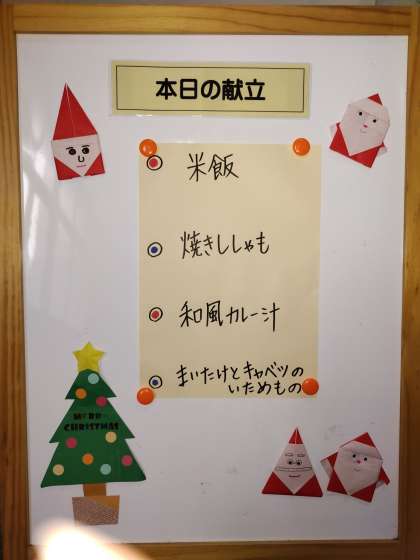 本日の献立
米飯
焼きししゃも
和風カレー汁
まいたけとキャベツの
いためもの
MERRY
CHRISTMAS